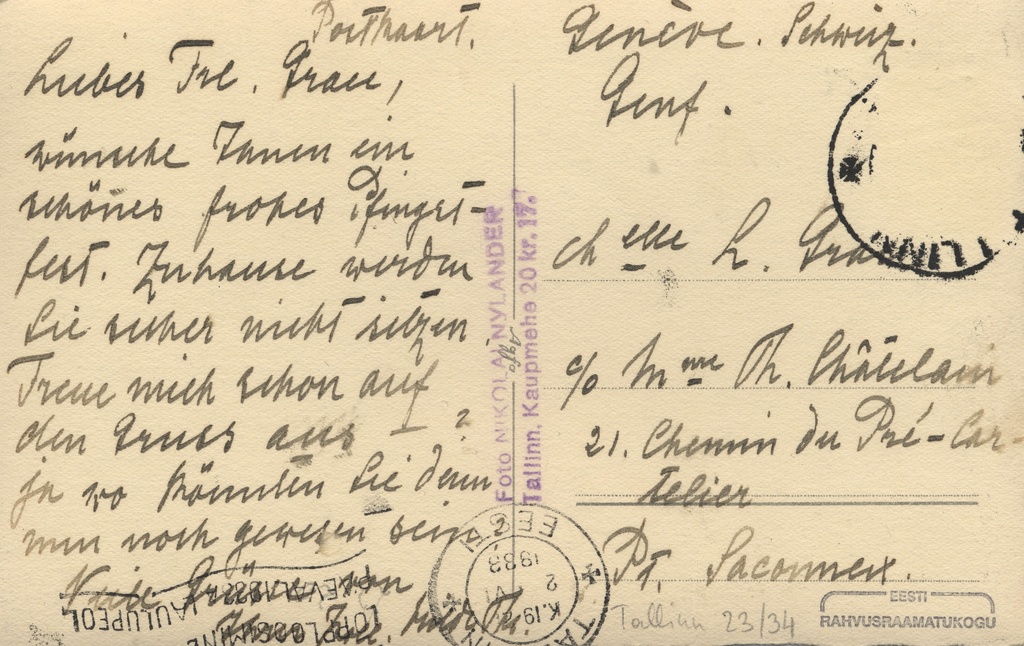 Postkaart.
Liebes Frl. Grau,
wünsche Ihnen ein
schönes frohes Pfingst-
fest. Zuhause werden
Sie sicher nicht sitzen
Freue mich schon auf
den Gruss aus – ?
ja wo könnten Sie denn
nun noch gewesen sein
Viele Grüsse von
Foto NIKOLAI NYLANDER
Tallinn, Kaupmehe 20 kr. 17.
Genève. Schweiz.
Genf.
elle L. Grau
c/o Mme Th. Châtelain
21. Chemin du Pré-Car-
telier
Pt. Saconnex.
TALLINN
EESTI
K.19
2 VI
1933
LAULUPEOL
Tallinn 23/34
EESTI
RAHVUSRAAMATUKOGU